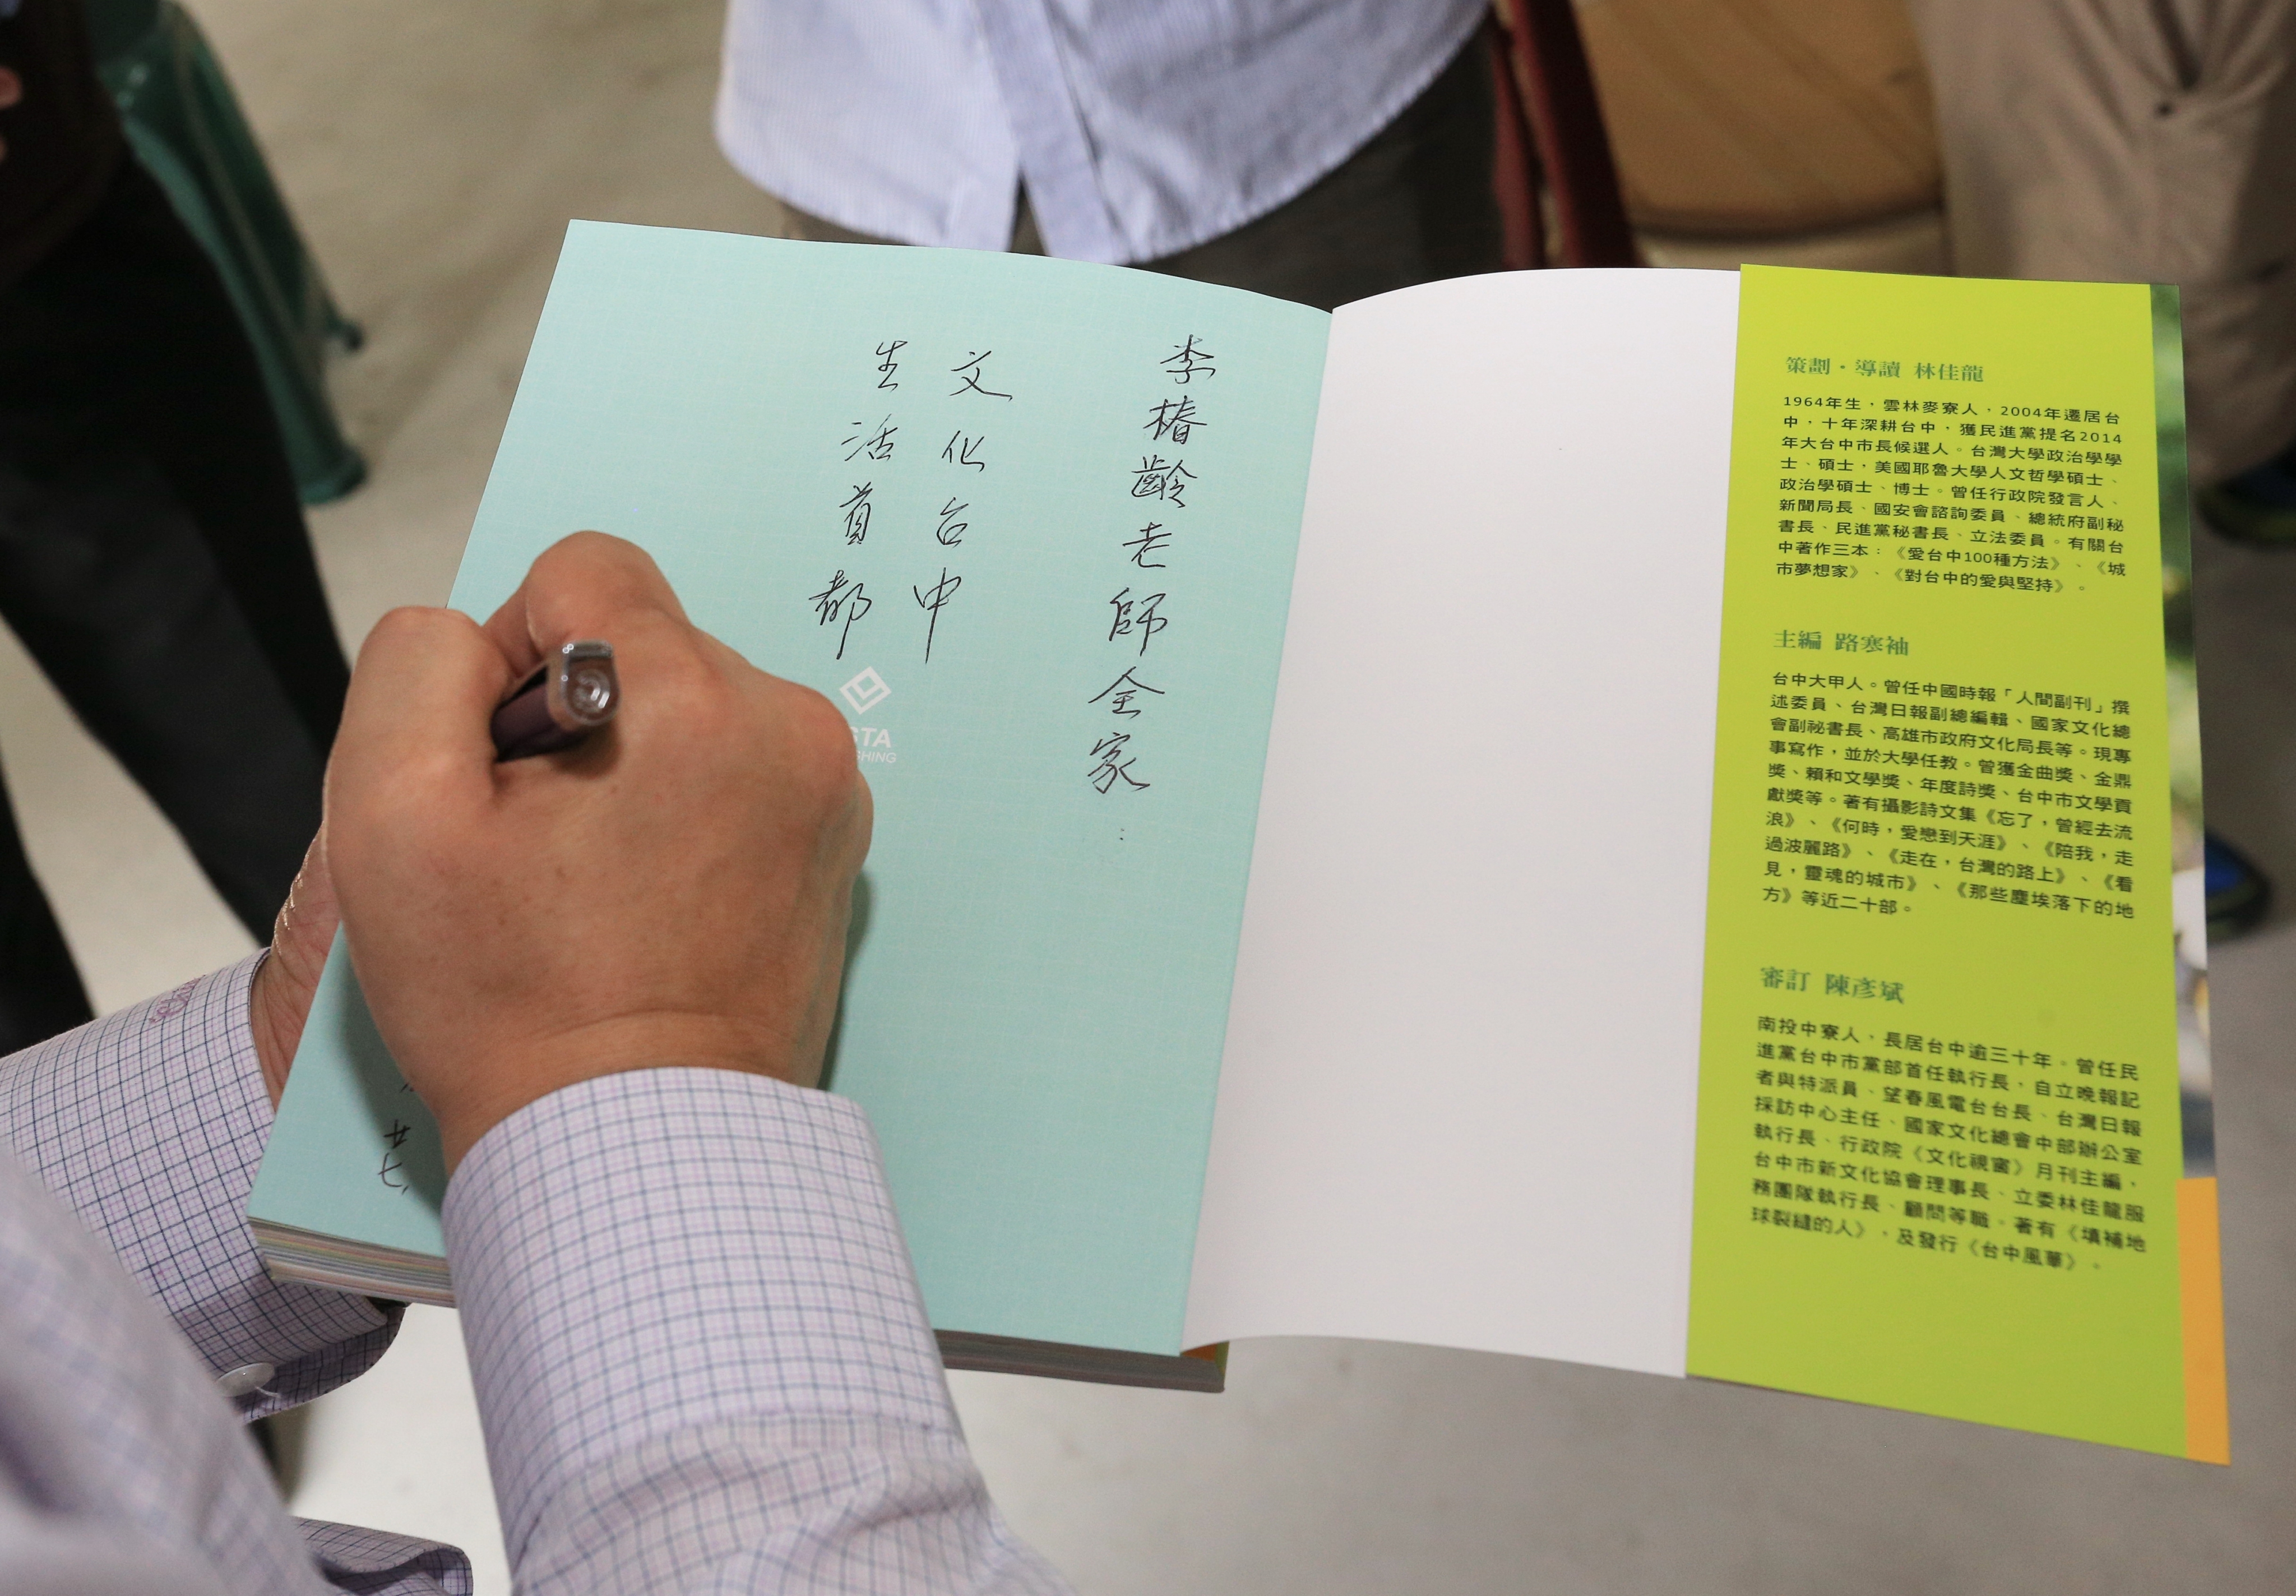 李椿齡老師全家：
文化台中
生活首都
廿七，
STA
SHING
策劃・導讀 林佳龍
1964年生，雲林麥寮人，2004年遷居台
中，十年深耕台中，獲民進黨提名2014
年大台中市長候選人。台灣大學政治學學
士、碩士，美國耶魯大學人文哲學碩士、
政治學碩士、博士。曾任行政院發言人、
新聞局長、國安會諮詢委員、總統府副秘
書長、民進黨秘書長、立法委員。有關台
中著作三本：《愛台中100種方法》、《城
市夢想家》、《對台中的愛與堅持》。
主編 路寒袖
台中大甲人。曾任中國時報「人間副刊」撰
述委員、台灣日報副總編輯、國家文化總
會副祕書長、高雄市政府文化局長等。現專
事寫作，並於大學任教。曾獲金曲獎、金鼎
獎、賴和文學獎、年度詩獎、台中市文學貢
獻獎等。著有攝影詩文集《忘了，曾經去流
浪》、《何時，愛戀到天涯》、《陪我，走
過波麗路》、《走在，台灣的路上》、《看
見，靈魂的城市》、《那些塵埃落下的地
方》等近二十部。
審訂 陳彥斌
南投中寮人，長居台中逾三十年。曾任民
進黨台中市黨部首任執行長，自立晚報記
者與特派員、望春風電台台長、台灣日報
採訪中心主任、國家文化總會中部辦公室
執行長、行政院《文化視窗》月刊主編、
台中市新文化協會理事長、立委林佳龍服
務團隊執行長、顧問等職。著有《填補地
球裂縫的人》，及發行《台中風華》。